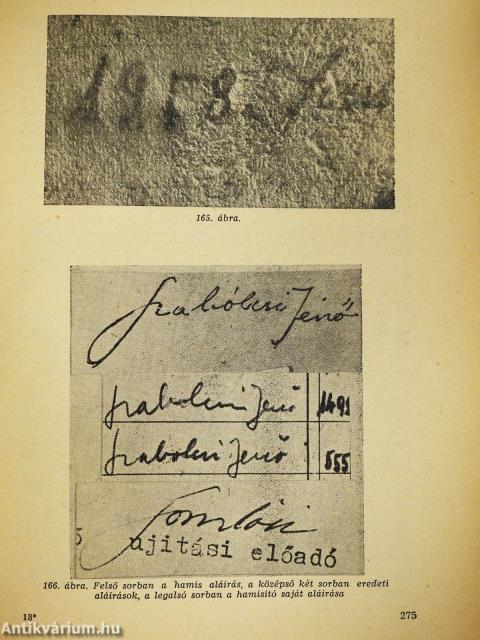 1958.
165. ábra.
Szabolcsi Jenő
Szabolcsi Jenő 1491
Szabolcsi Jenő 555
újitási előadó
166. ábra. Felső sorban a hamis aláírás, a középső két sorban eredeti
aláírások, a legalsó sorban a hamisító saját aláírása
18*
275
Antikvárium.hu